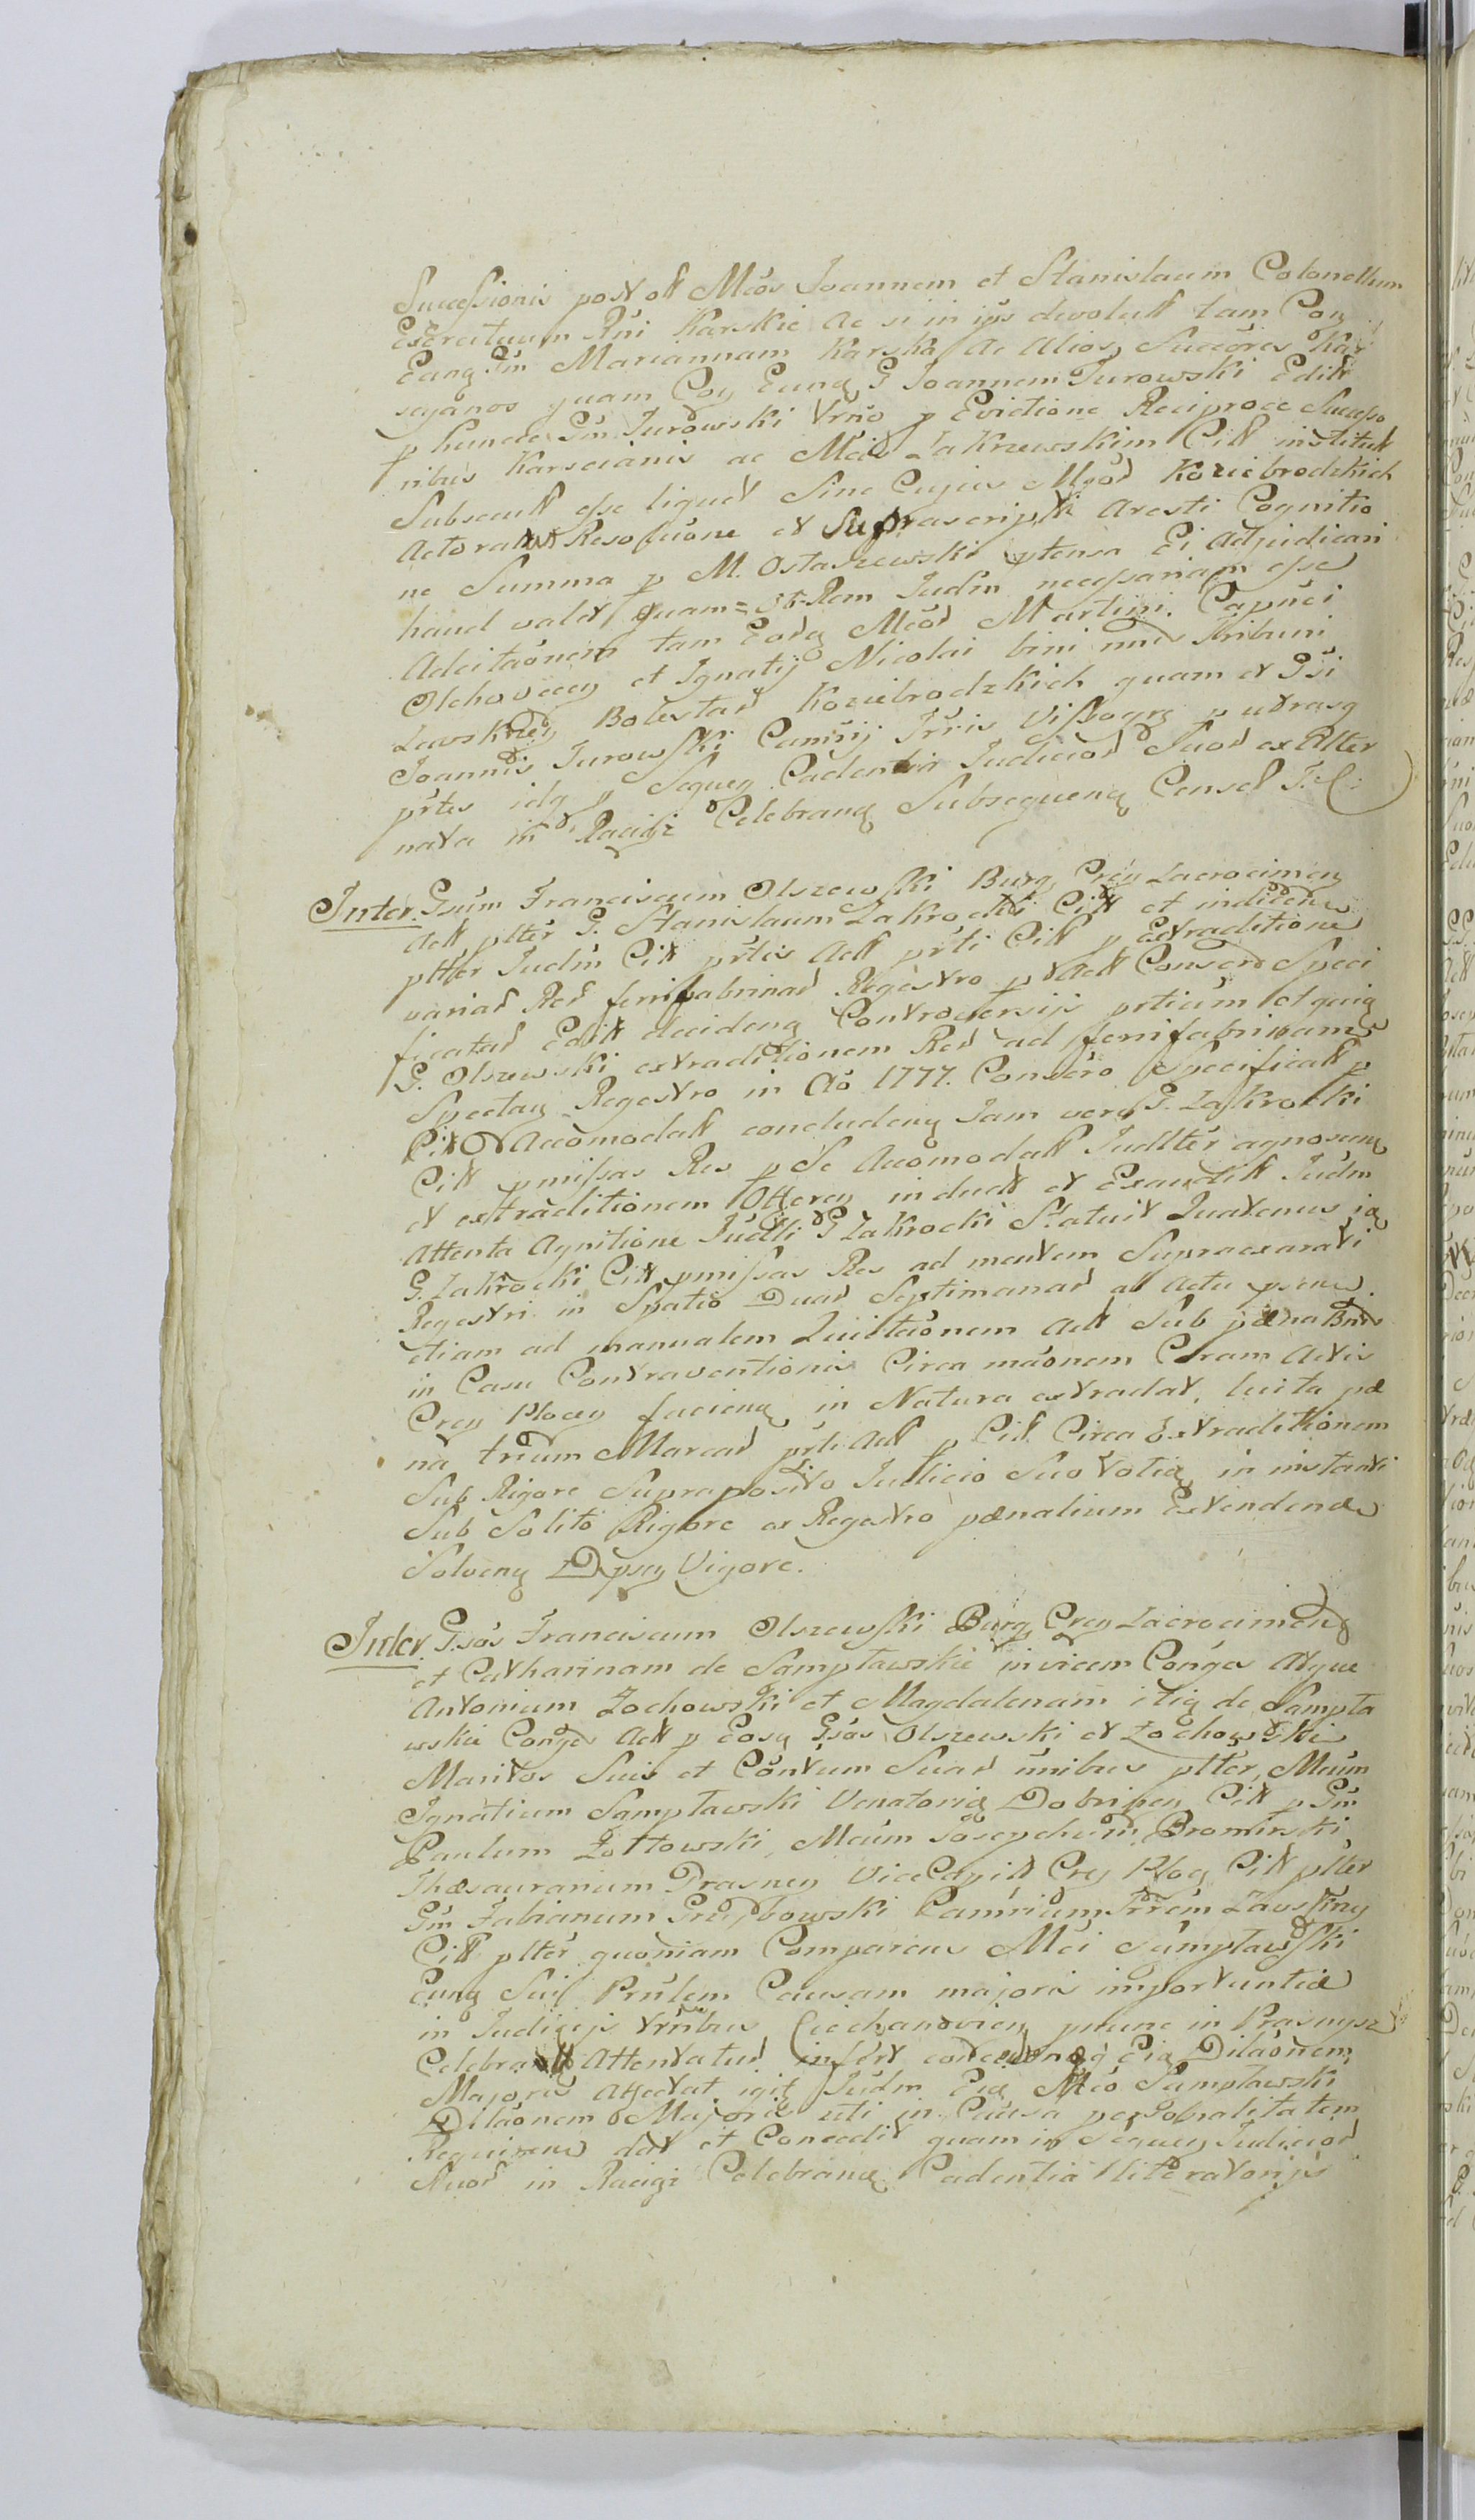 Successionis post olt Mcos Joannem et Stanislaum Colonellum
Exercituum Rni Karskie ac si in ipos devolutt tam Coy
Eung Gm Mariannam Karska Ac Alios Succores Kar
scianos quam Coy Eung G Joannem Turowski Editt
p hunce Gm Turowski Vrno p Evictione Reciproce Successo
ribus Karscianis ac Mcis Zakrzewskim Citt institutt
Subsecutt esse liquet Sine Cujus Mcor Koziebrodzkich
Actoratus Resoluone et Suprascripti Aresti Cognitio
ne Summa p M. Ostaszewski ptensa Ei Adjudicari
haud valet quam Jt-Rem Judm necessariam esse
Adcitaonem tam Eorg Mcor Martini Capnei
Olchovecey et Ignatij Nicolai bini nnis Tribuni
Zawskrzey Bolestar Koziebrodzkich quam et Gsi
Joannis Turowski Camrij Trris Vissogrg p utrasq
prtes idq p Sequey Cadentia Judicior Suor ex Alter
nata in Raciąż Celebrang Subsequeng Censet I: C:
Inter Gsum Franciscum Olszewski Burg Crey Zacrocimey
Att plter G. Stanislaum Zakrocki Citt et indidem
plter Judm Citt prtis Actt prti Citt p Extraditione
variar Rer ferrifabrinar Regestro p Actt Consero Speci
ficatar Editt decideng Controversijs prtium et quia
G. Olszewski extraditionem Rer ad ferrifabrinam
Spectay Regestro in Ao 1777. Consero Specificatt p
Citt Acomodatt concludeng Jam vero G. Zakrocki
Citt pmissas Res p Se Acomodatt Judlter agnosceng
et extraditionem Offerey induett et Exaudtt Judm
Attenta Agnitione Judli G Zakrocki Statuit Quatenus iq
G. Zakrocki Citt pmissas Res ad mentem Supraexarati
Regestri in Spatio Duar Septimanar ab Actu psenti
etiam ad manualem Quittaonem Actt Sub pæna Bnis
in Casu Contraventionis Circa maonem Coram Actis
Crey Plocey facieng in Natura extradat, luita pæ
na trium Marcar prti Actt p Citt Circa Extraditionem
Sub Rigore Supraposito Judicio Suo Votiq in instanti
Sub Solito Rigore ex Regestro pænalium Extendendæ
Solveng Dpsey Vigore.
Inter. Gsos Franciscum Olszewski Burg Crey Zacrocimen
et Catharinam de Sampławskie invicem Conges Atque
Antonium Zochowski et Magdalenam itiq de Sampła
wskie Conges Actt p Eosq Gsos Olszewski et Zochowski
Maritos Suis et Contum Suar nnibus plter, Mcum
Ignatium Sampławski Venatorig Dobrinen Citt p Gm
Paulum Żołtowski, Mcum Josephum Bromirski
Thæsaurarium Prasney ViceCapitt Crey Ploc Citt plter
Gm Fabianum Grzybowski Camrium Trrem Zawskrzy
Citt plter quoniam Comparens Mci Sampławski
Eung Sui Prulem Causam majoris importuntiæ
in Judicijs Vrribus Ciechanovien pnunc in Prasnysz
Celebratt Attentatur infert concedendæq Eiq Dilaonem
Majoris Affectat igit Judm Eiq Mco Sampławski
Dilaonem Majoris uti in Causa personalitatem
Requirens dat et Concedit quam in Sequey Judicior
Suor in Raciąż Celebrang Cadentia literatorijs